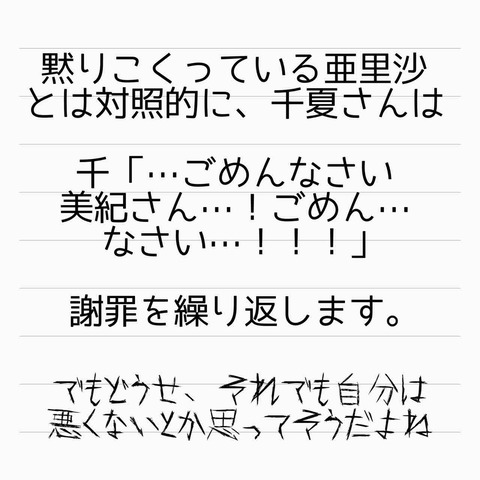 黙りこくっている亜里沙
とは対照的に、千夏さんは
千「…ごめんなさい
美紀さん…！ごめん…
なさい…！！！」
謝罪を繰り返します。
でもどうせ、それでも自分は
悪くないとか思ってそうだよね